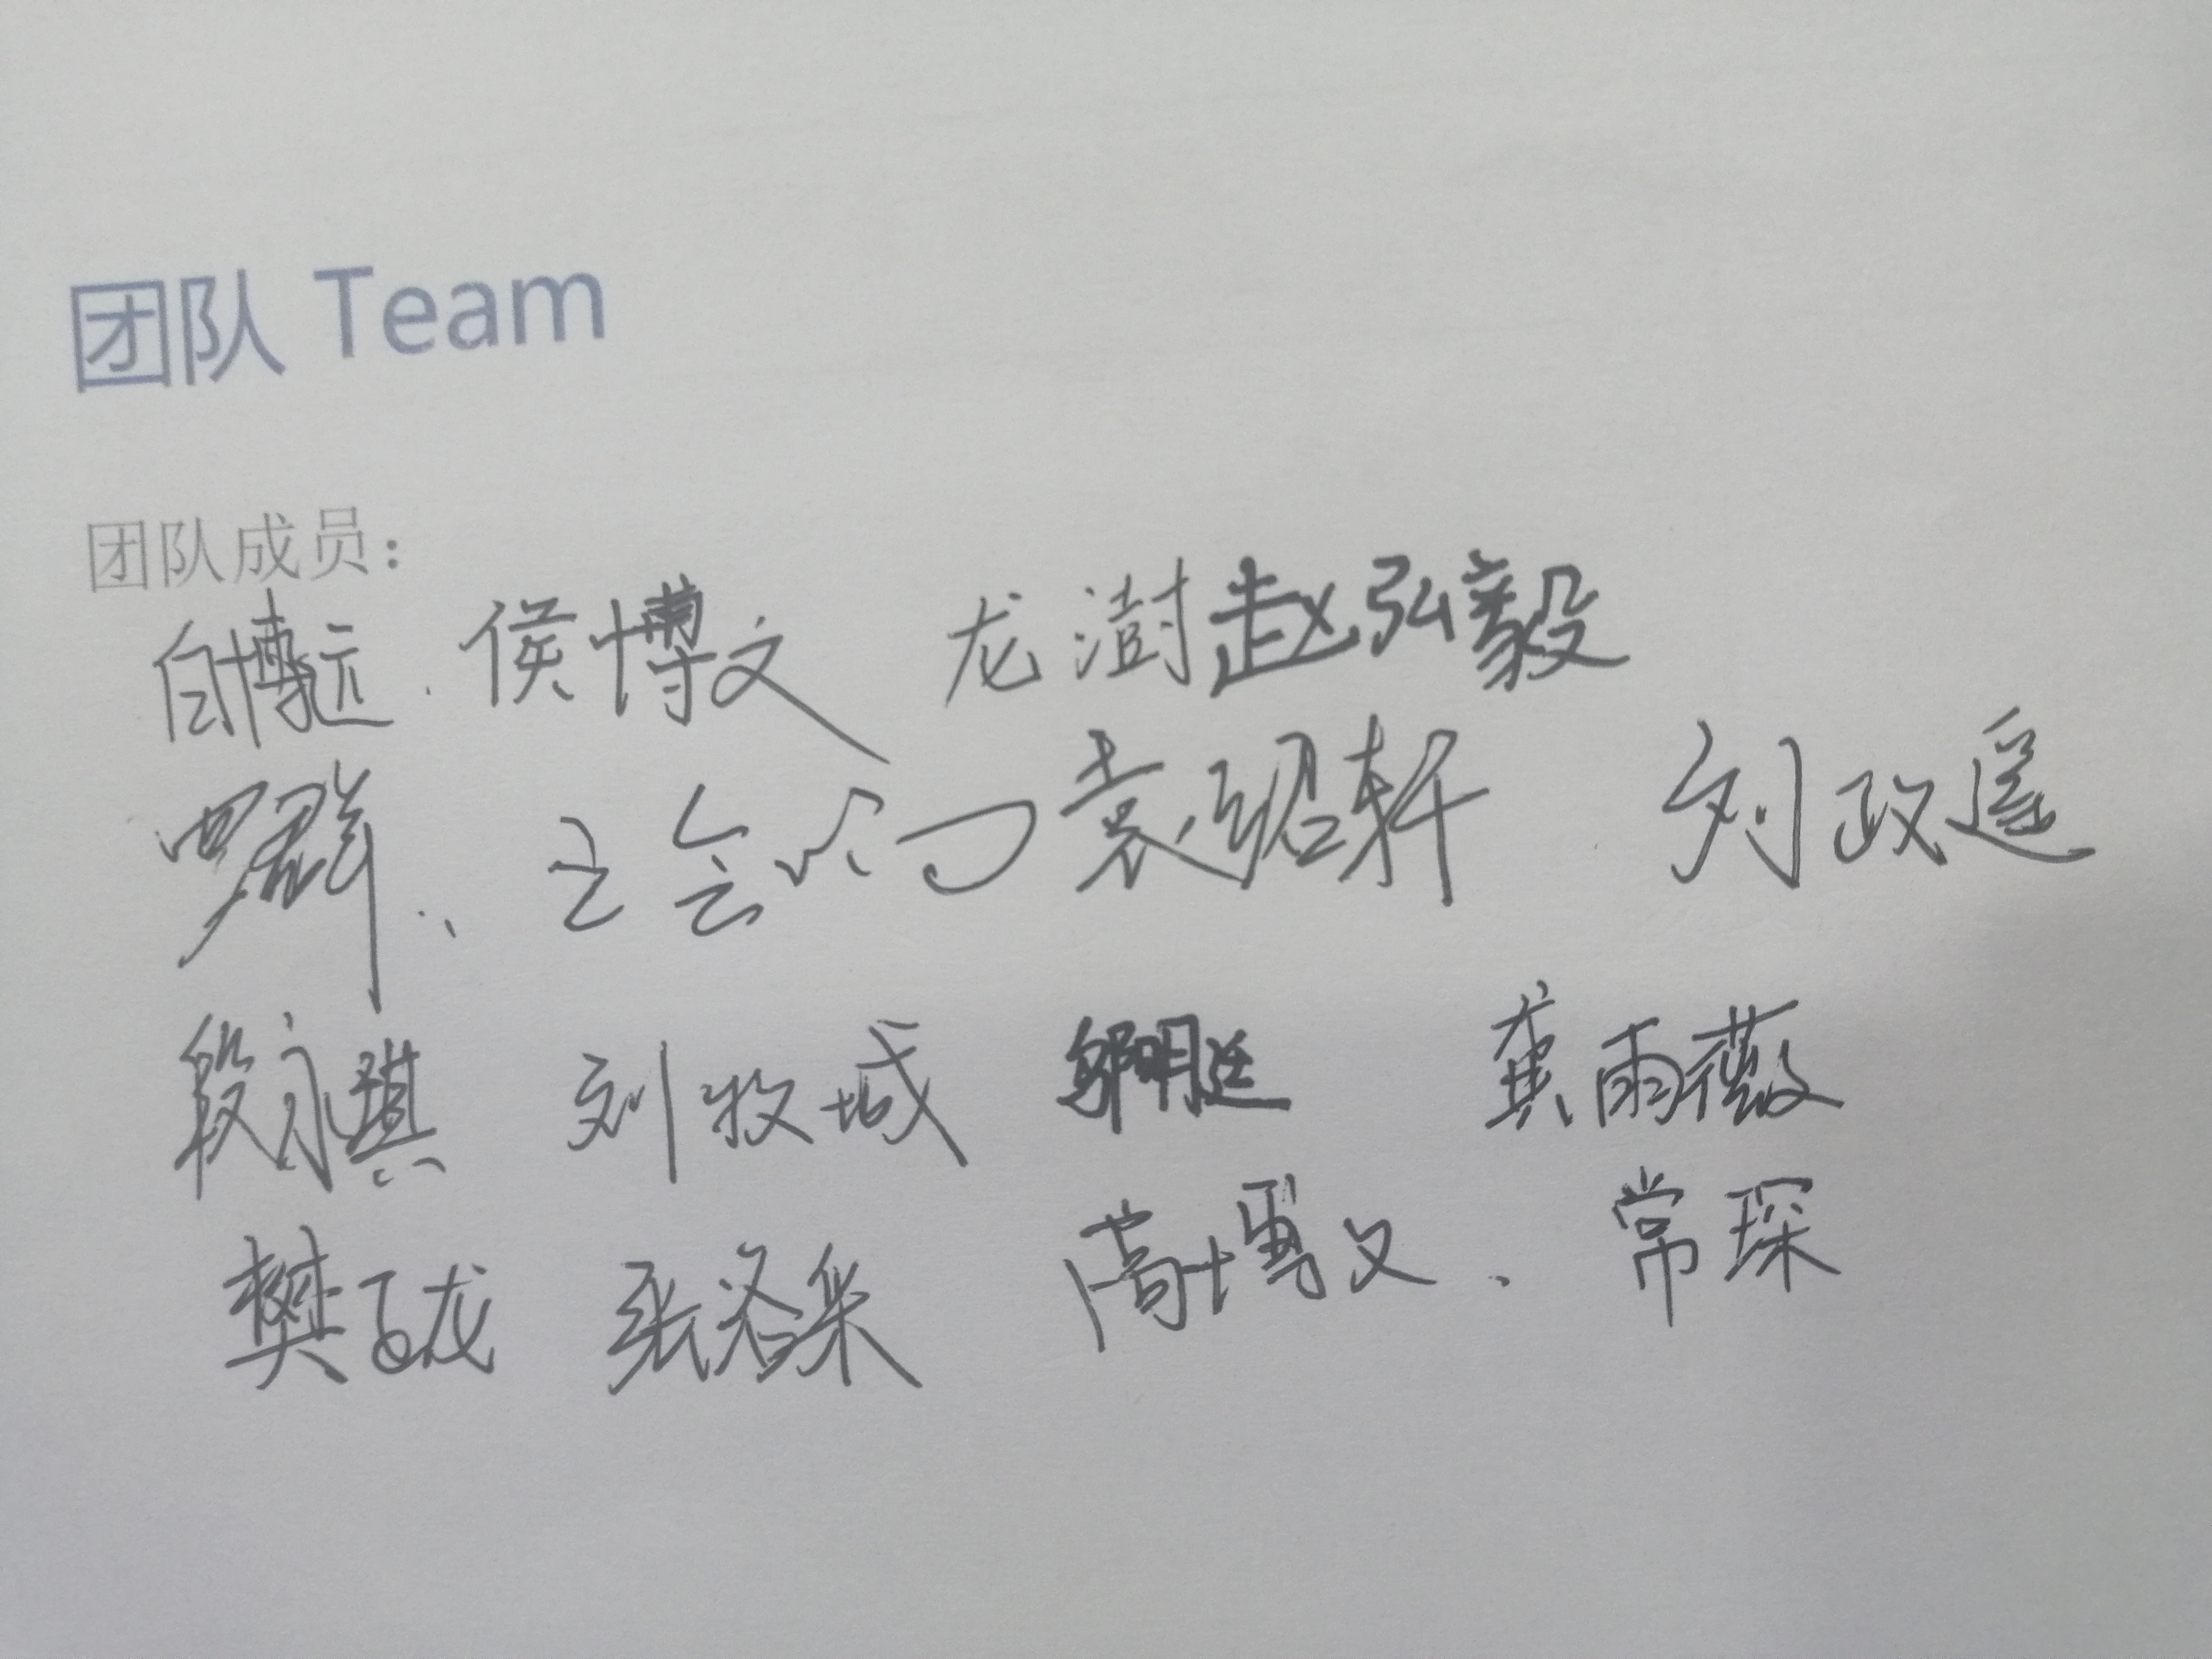 团队 Team
团队成员:
白博远. 侯博文 龙澍 赵弘毅
罗群 袁绍轩 刘政遥
段永琪 刘牧城 邹明廷 龚雨薇
樊龙 张洛枀 蔺博文. 常琛